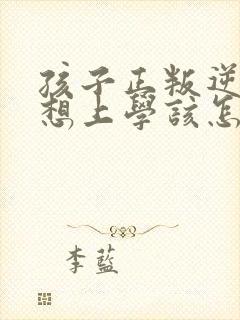 孩子正叛逆
想上學該怎
李藍